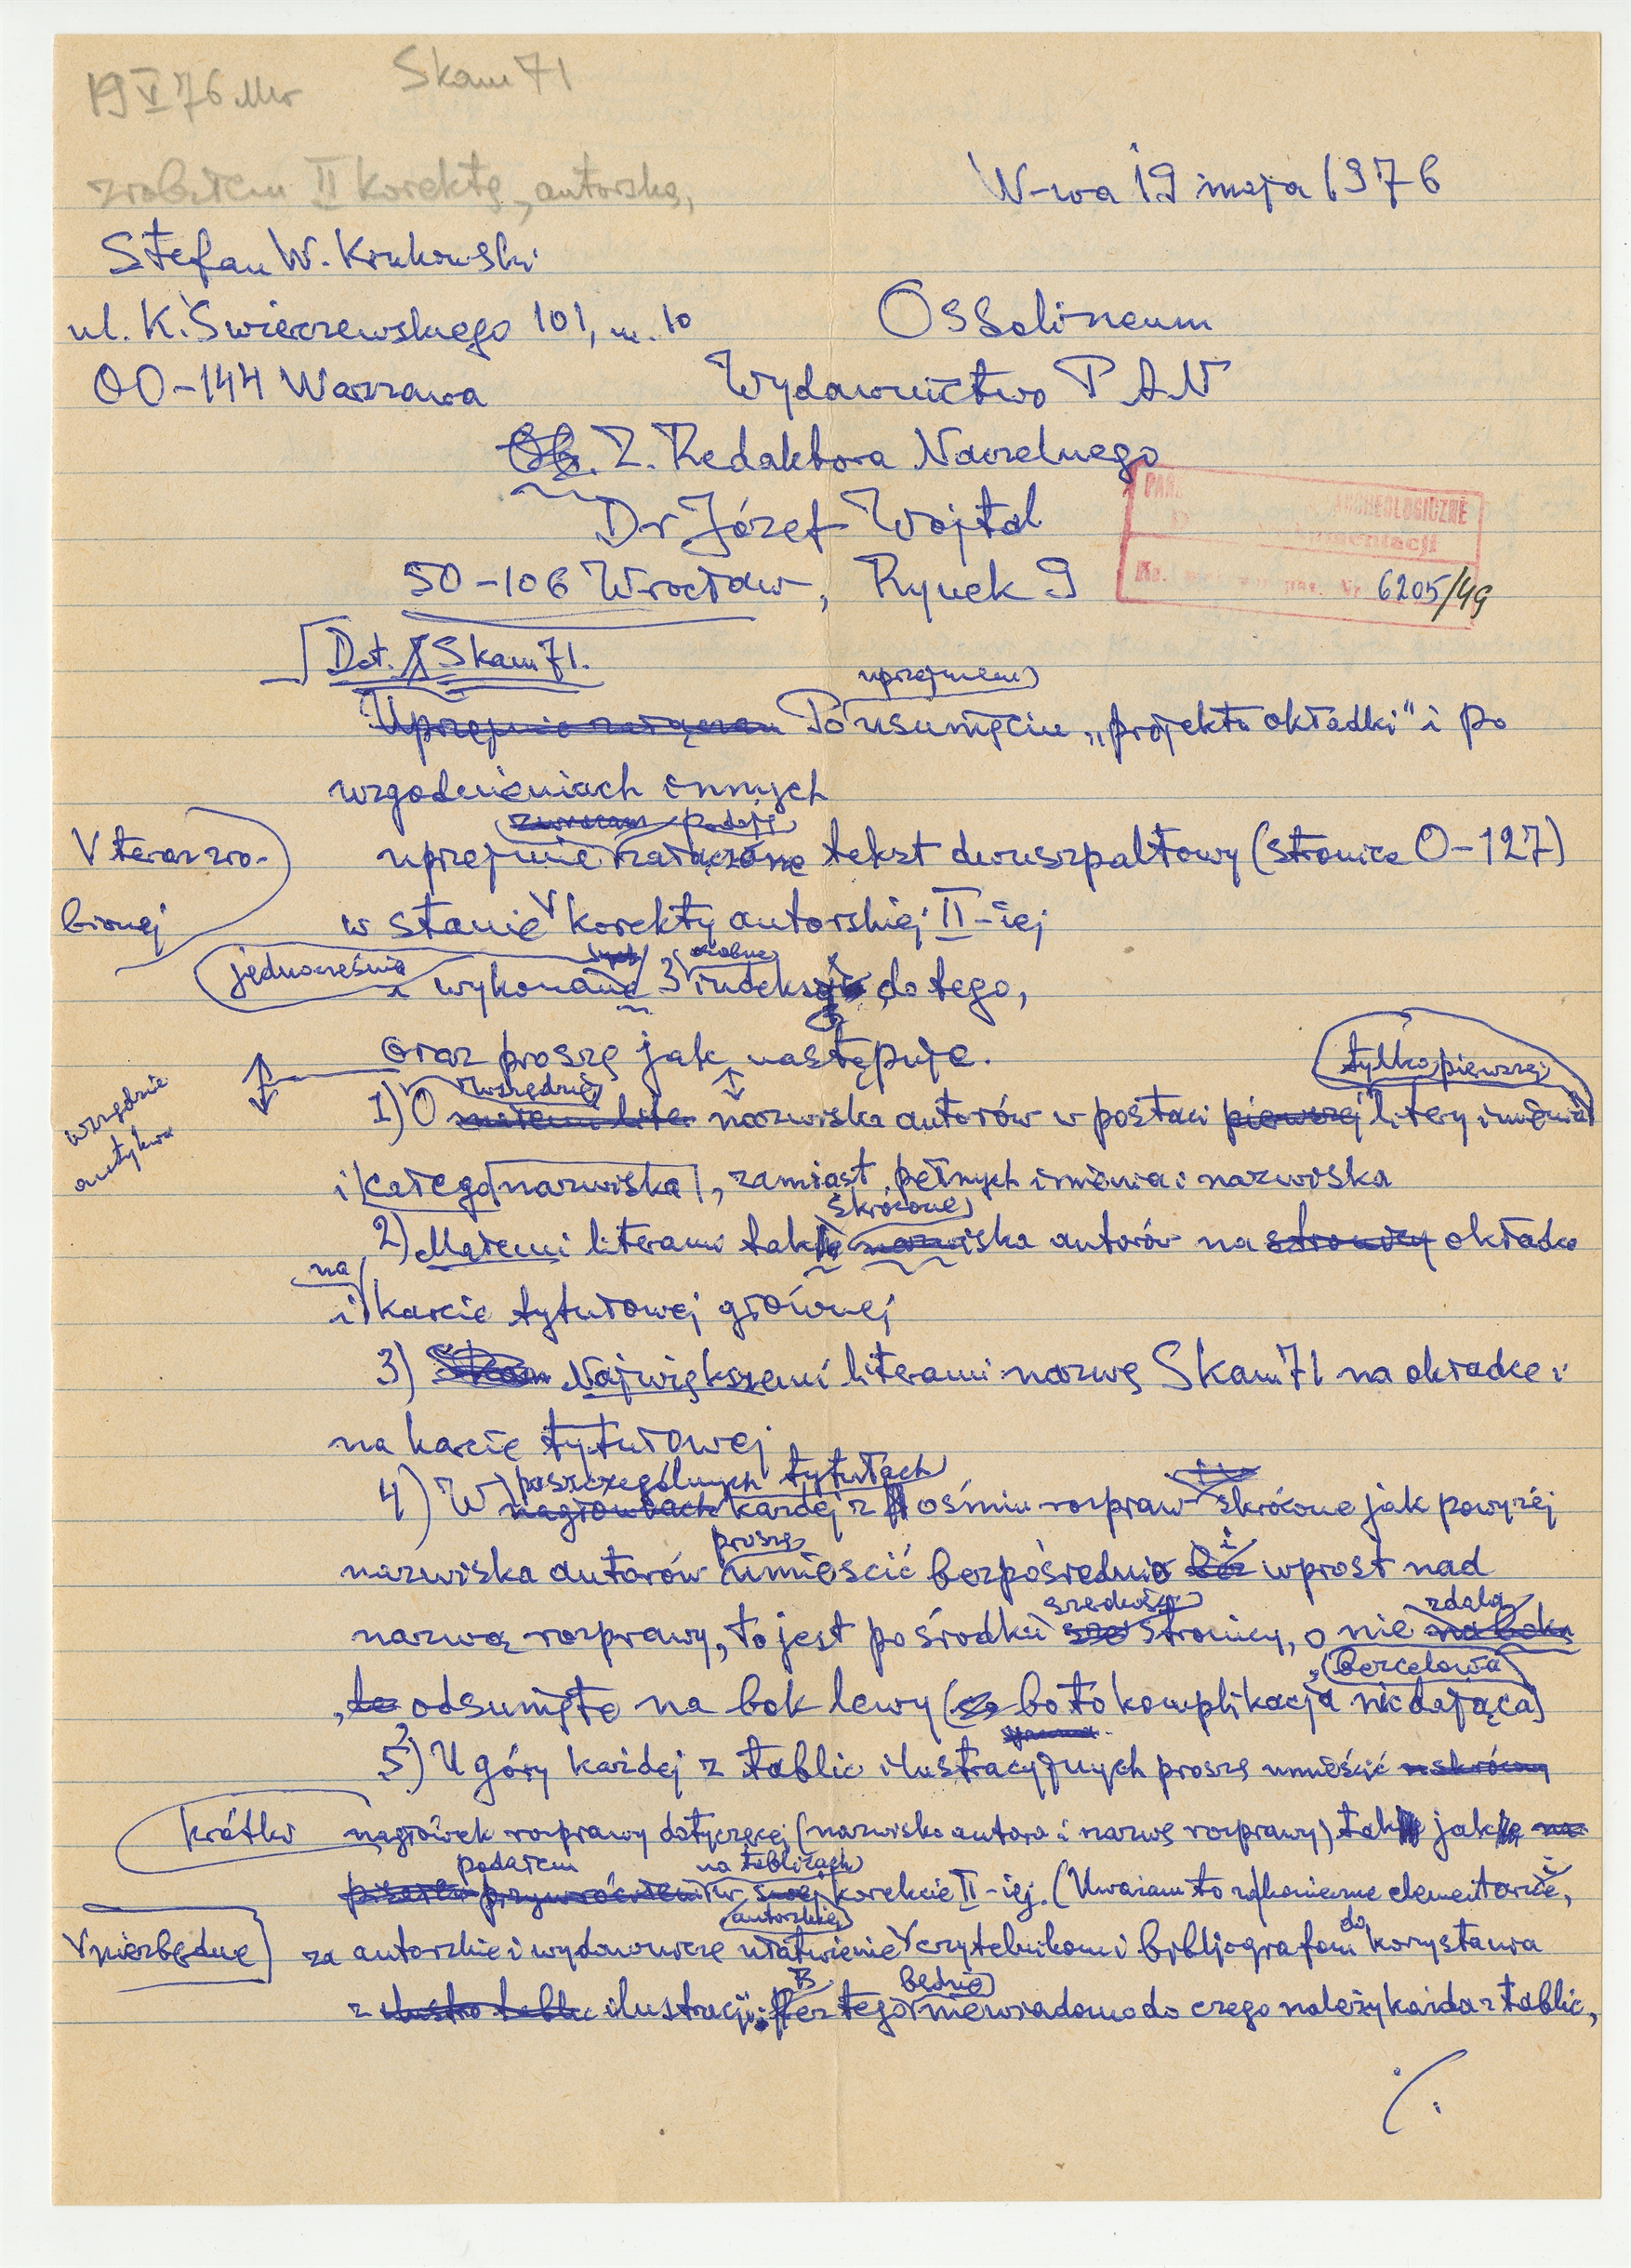 19 V 76
Skam 71
zrobiłem II korektę „autorską,
W-wa 19 maja 1976
Stefan W. Krukowski
ul. K. Świerczewskiego 101, m. 10
Ossolineum
00-144 Warszawa
Wydawnictwo PAN
Ob. Z. Redaktora Naczelnego
Dr Józef Wojtal
ARCHEOLOGICZNE
50-106 Wrocław, Rynek 9
6205/49
Dot. Skam 71.
uprzejmem
Uprzejmie załączam Po usunięciu „projektu okładki" i po
uzgodnieniach innych
zwracam podaję
V teraz zro-
uprzejmie załączone tekst dwuszpaltowy (stronice 0-127)
bionej
w stanie V korekty autorskiej II-iej
jednocześnie
osobne
i wykonane 3 indeksy do tego,
oraz proszę jak następuje.
tylko pierwszej
wszędzie
antykwa
wszędzie
1) O małemi liter nazwiska autorów w postaci pierwszej litery imienia
i całego nazwiska, zamiast pełnych imienia i nazwiska
skrócone
2) Małemi literami takie nazwiska autorów na stronicy okładce
na
i karcie tytułowej głównej
3) Skam Największemi literami nazwę Skam 71 na okładce i
na karcie tytułowej
poszczególnych tytułach
4) W nagłówkach każdej z ośmiu rozpraw skrócone jak powyżej
proszę
i
nazwiska autorów umieścić bezpośrednio wprost nad
szerokości
zdala
nazwą rozprawy, to jest pośrodku stronicy, o nie na boku
bezcelowa
odsunięte na bok lewy (bo to komplikacja nic dająca)
5) U góry każdej z tablic ilustracyjnych proszę umieścić w skrócony
krótki
nagłówek rozprawy dotyczącej (nazwisko autora i nazwę rozprawy) tak jak
podałem
na tablicach
w swej korekcie II-iej. (Uważam to za konieczne elementarnie,
autorskiej
V niezbędne
do
za autorskie i wydawnicze ułatwienie V czytelnikom i bibljografom korzystania
B
będzie
z ilustracji; Bez tego niewiadomo do czego należy każda z tablic,
./.